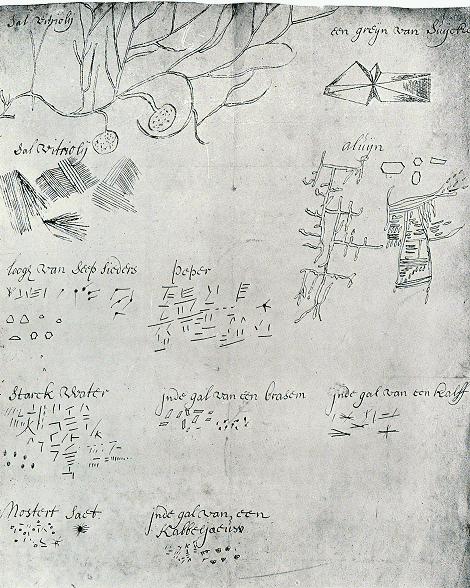 Sal vitriolj
een greijn van Suijcker
Sal Vitriolj
aluijn
loogh van Seep Sieders
peper
Starck Water
jnde gal van een brasem
jnde gal van een kalff
Mostert Saet
jnde gal van een
Kabbeljaeuw